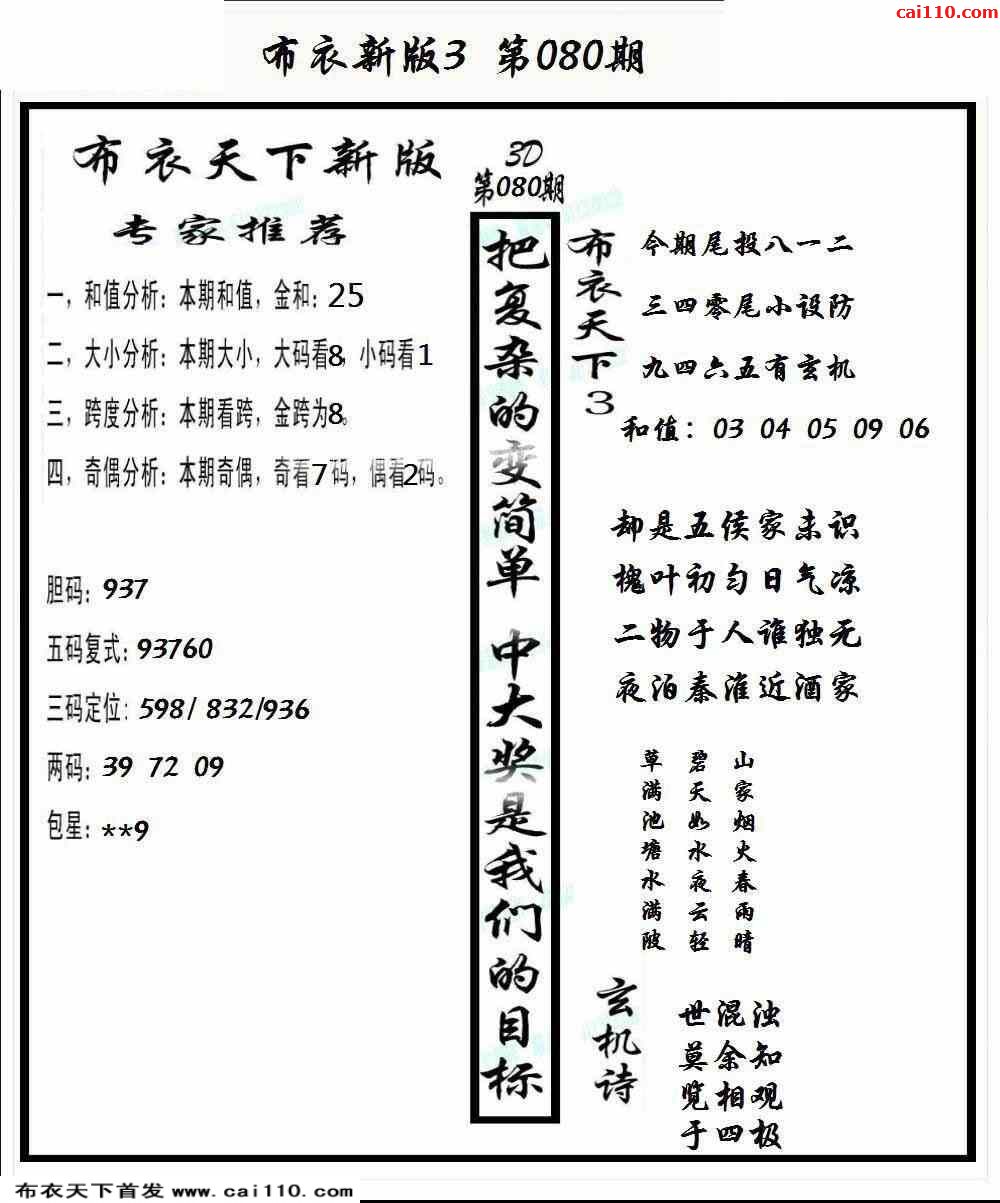 cai110.com
布衣新版3 第080期
布衣天下新版
专家推荐
一，和值分析：本期和值，金和：25
二，大小分析：本期大小，大码看8，小码看1
三，跨度分析：本期看跨，金跨为8。
四，奇偶分析：本期奇偶，奇看7码，偶看2码。
胆码：937
五码复式：93760
三码定位：598/ 832/936
两码：39 72 09
包星：**9
3D
第080期
把复杂的变简单 中大奖是我们的目标
布衣天下3
今期尾投八一二
三四零尾小设防
九四六五有玄机
和值： 03 04 05 09 06
却是五侯家未识
槐叶初匀日气凉
二物于人谁独无
夜泊秦淮近酒家
山家烟火春雨晴
碧天如水夜云轻
草满池塘水满陂
玄机诗
世混浊
莫余知
览相观
于四极
布衣天下首发 www.cai110.com